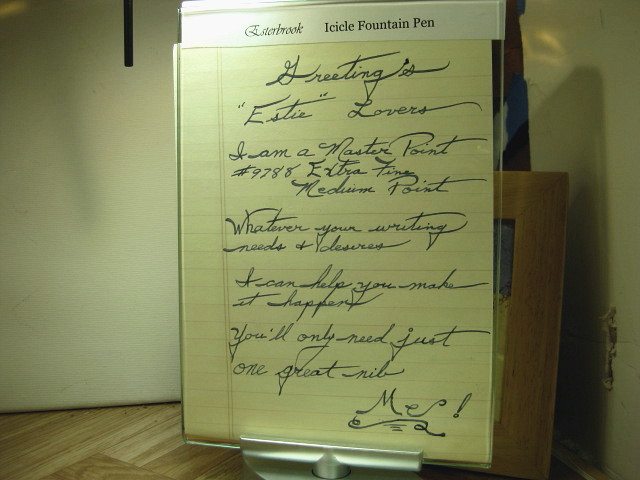 Esterbrook Icicle Fountain Pen
Greeting's
"Estie" Lovers
I am a Master Point
#9788 Extra Fine
Medium Point
Whatever your writing
needs & desires
I can help you make
it happen
You'll only need just
one great nib
Me!